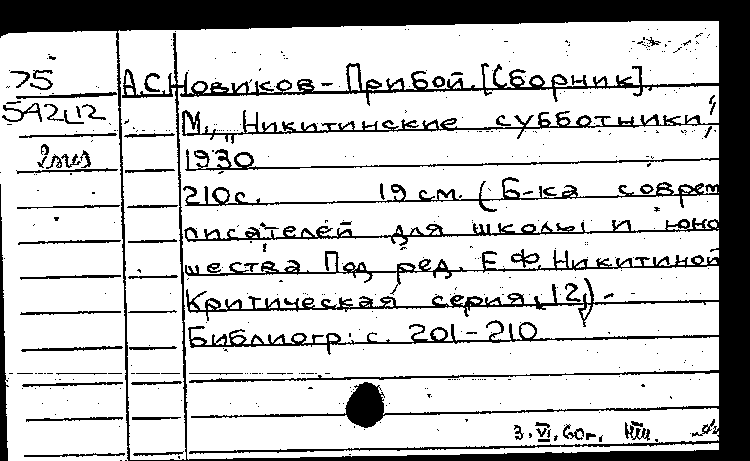 75 А.С. Новиков-Прибой. [Сборник].
542,12 М., „Никитинские субботники”,
2экз 1930
210с. 19 см. (Б-ка соврем
писателей для школы и юно
шества. Под ред. Е.Ф. Никитиной
Критическая серия, 12) -
Библиогр: с. 201-210
3.VI.60г.